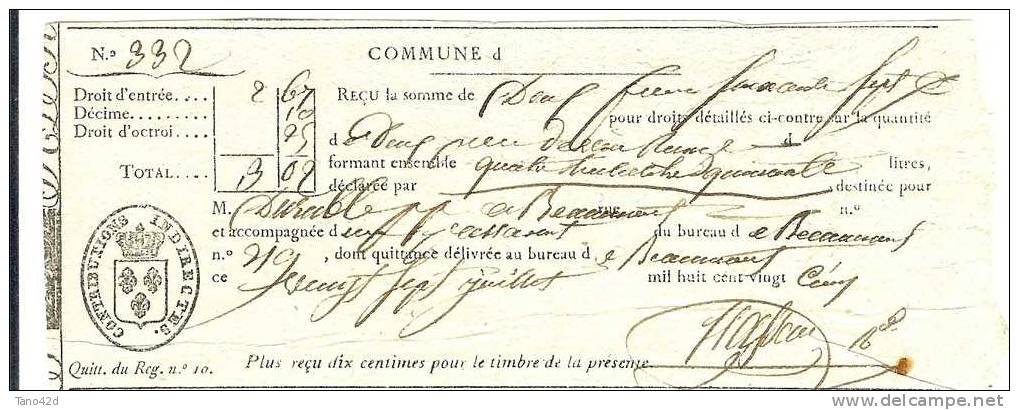 N.º 332 COMMUNE d
Droit d'entrée.... 2 67 REÇU la somme de Deux francs soixante sept c
Décime......... 10 pour droits détaillés ci-contre sur la quantité
Droit d'octroi... 25 d e Deux d
TOTAL.... 3 02 formant ensemble quatre hectolitres quarante litres,
déclarée par destinée pour
M. Durable de Beaumont n.º
et accompagnée d'un passavant du bureau d e Beaumont
n.º 219, dont quittance délivrée au bureau d e Beaumont
ce vingt sept juillet mil huit cent vingt Cinq
CONTRIBUTIONS INDIRECTES.
Quitt. du Reg. n.º 10. Plus reçu dix centimes pour le timbre de la présente.
Tano42d
delcampe.net